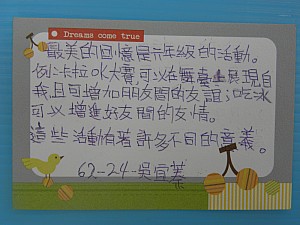 Dreams come true
最美的回憶是六年級的活動。
例:卡拉OK大賽,可以在舞臺上展現自
我,且可增加的朋友間的友誼;吃冰
可以增進好友間的友情。
這些活動有著許多不同的意義。
62-24-吳宜蓁